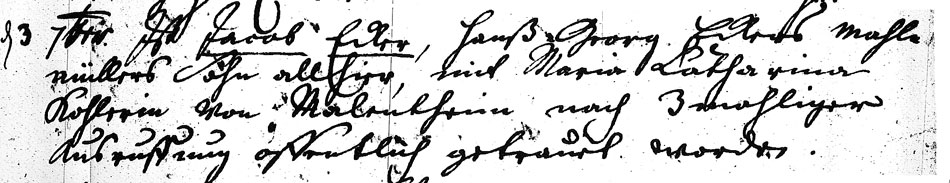 d 3 7br. Ist Jacob Edler, Hanß Georg Edlers Mahl-
müllers Sohn allhier, mit Maria Catharina
Kohlerin von Malentheim nach 3 mahliger
Ausruffung öffentlich getrauet worden.